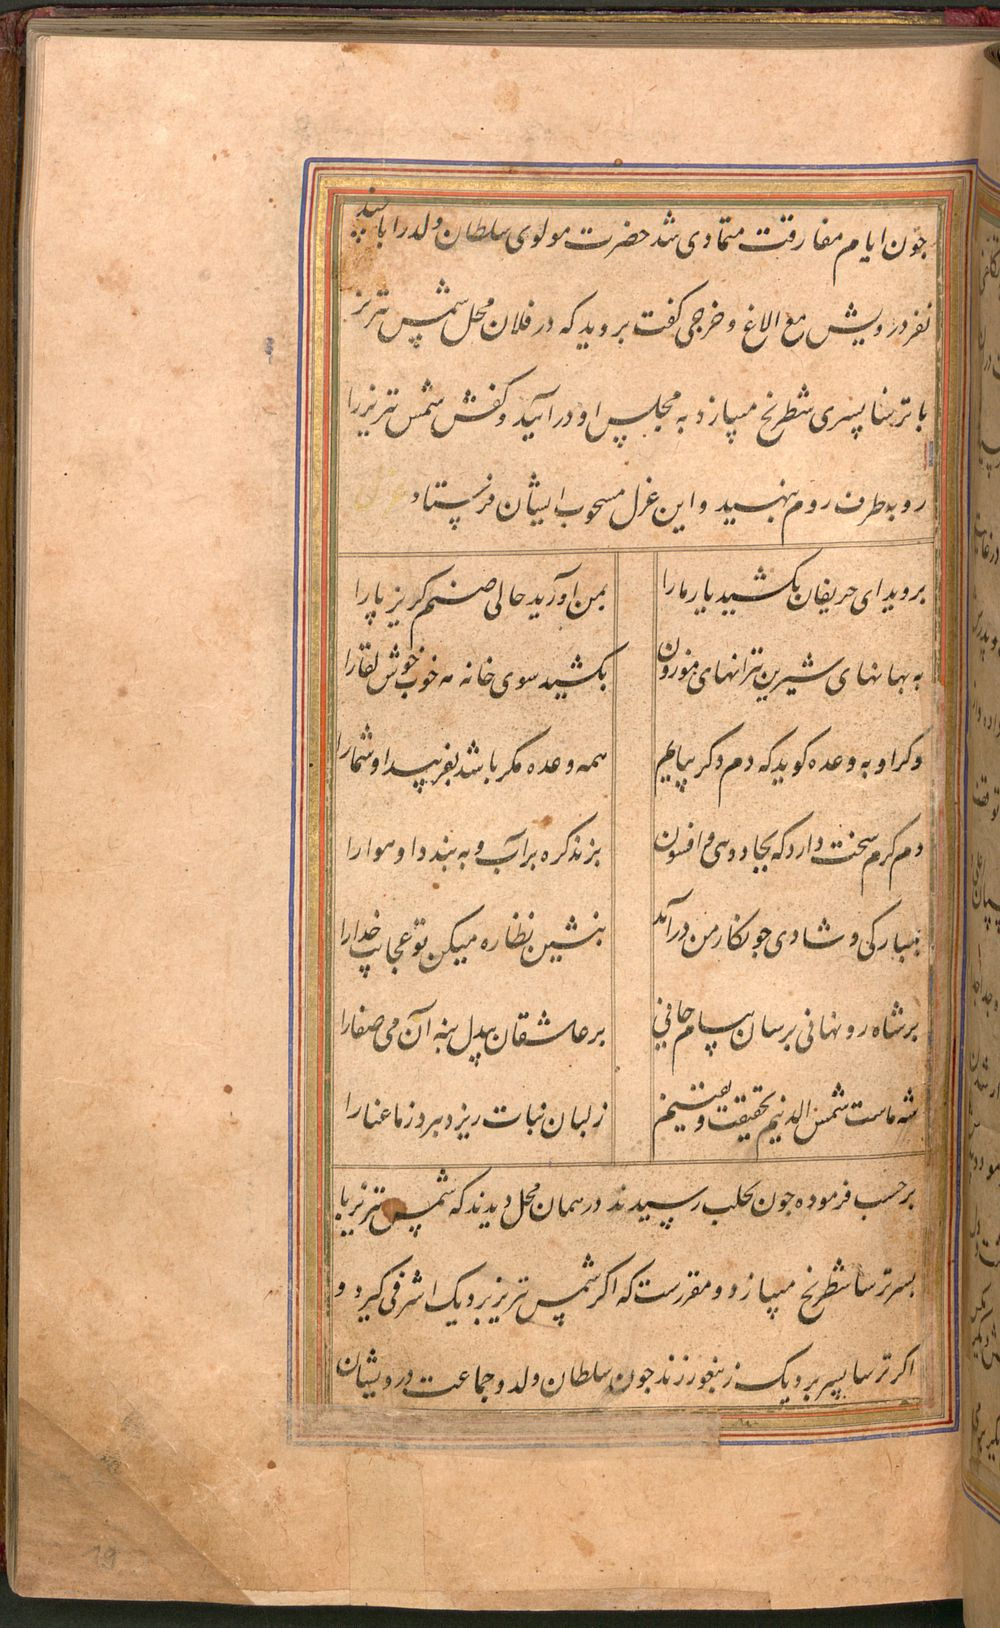 جون ایام مفارقت متمادی شد حضرت مولوی سلطان ولد را با بیست
نفر درویش مع الاغ و خرجی کفت بروید که در فلان محل شمس تبریز
با ترسا پسری شطرنج میبازد به مجلس او درآیید و کفش شمس تبریز را
رو به طرف روم بنهید و این غزل مصحوب ایشان فرستاد
بروید ای حریفان بکشید یار ما را
بمن آورید حالی صنم کریزپا را
به بهانهای شیرین ترانهای موزون
بکشید سوی خانه مه خوب خوش لقا را
وکر او به وعده کوید که دم دکر بیایم
همه وعده مکر باشد بفریبد او شما را
دم کرم سخت دارد که بجادوی و افسون
بزند کره بر آب و به بندد او هوا را
بمبارکی و شادی جو نکار من درآید
بنشین نظاره میکن تو عجایب خدا را
بر شاه رو نهانی برسان پیام جانی
بر عاشقان بیدل بنه آن می صفا را
شه ماست شمس الدینم بحقیقت و یقینم
ز لبان نبات ریزد ببرد ز ما عنا را
بر حسب فرموده جون بحلب رسیدند در همان محل دیدند که شمس تبریز با
بسر ترسا شطرنج میبازد و مقررست که اکر شمس تبریز برد یک اشرفی کیرد و
اکر ترسا پسر برد یک زنخ خورد زند جون سلطان ولد و جماعت درویشان
19